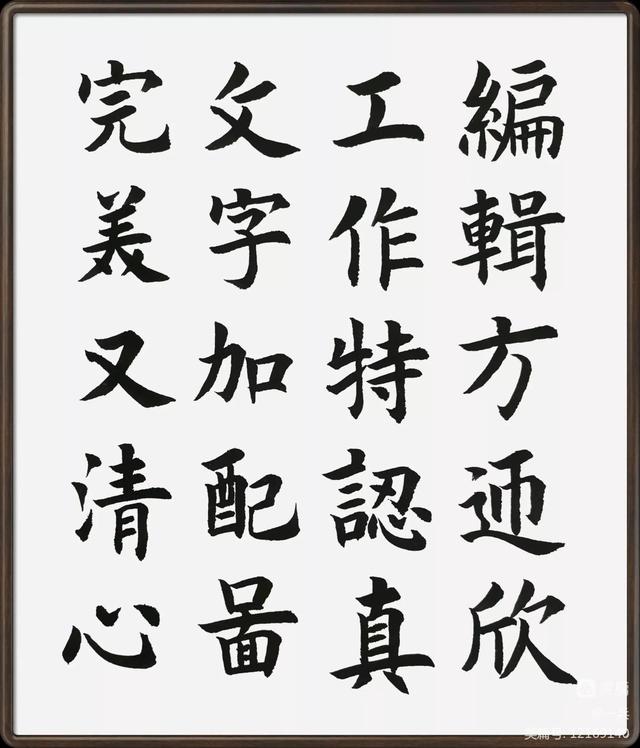 編輯方迊欣
工作特認真
文字加配啚
完美又清心
美篇